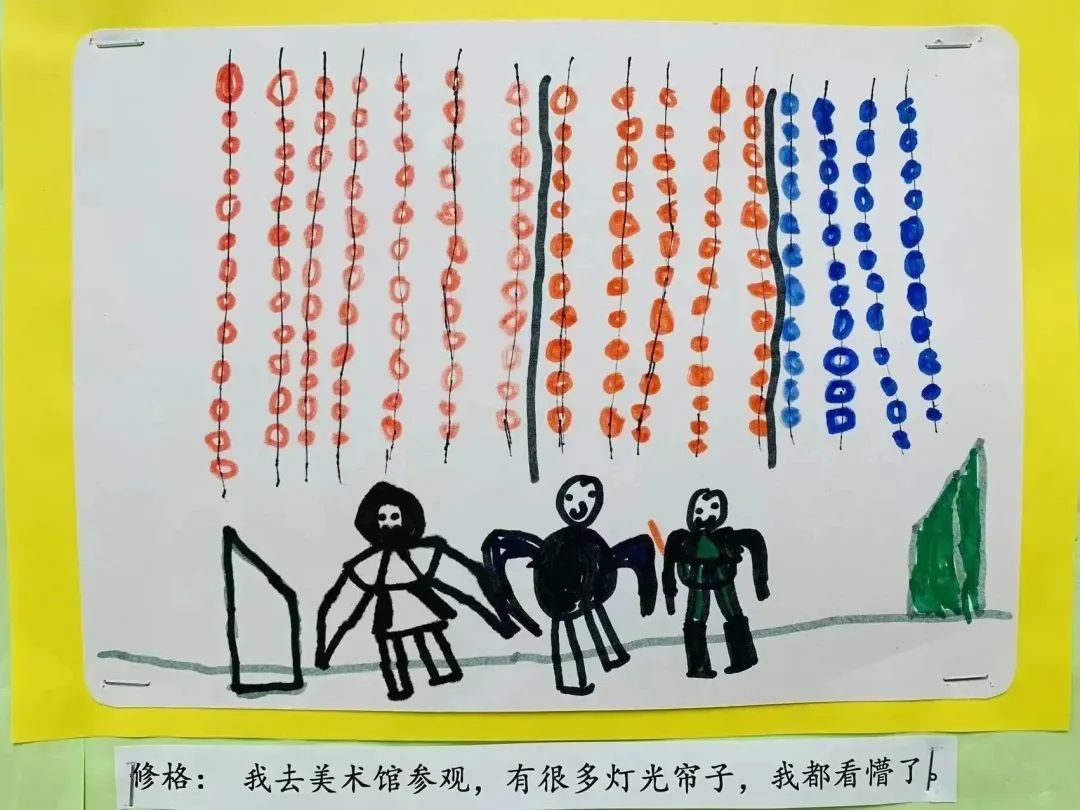 修格： 我去美术馆参观，有很多灯光帘子，我都看懵了。